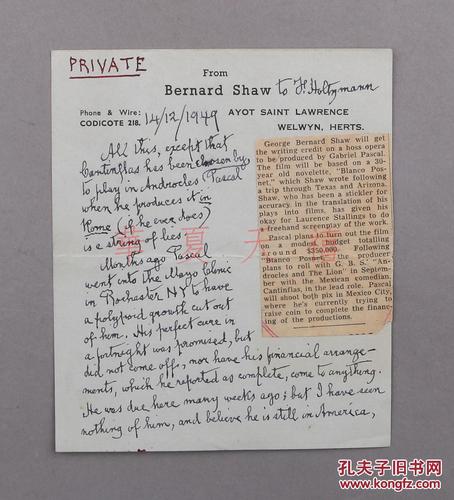 PRIVATE
From
Bernard Shaw to F. Holtzmann
Phone & Wire:
CODICOTE 218.
14/12/1949
AYOT SAINT LAWRENCE
WELWYN, HERTS.
All this, except that
Cantinflas has been chosen by
to play in Androcles (Pascal
when he produces it in
Rome (if he ever does)
is a string of lies
Months ago Pascal
went into the Mayo Clinic
in Rochester NY to have
a polypoid growth cut out
of him. His perfect cure in
a fortnight was promised, but
did not come off, nor have his financial arrange-
ments, which he reported as complete, come to anything.
He was due here many weeks ago; but I have seen
nothing of him, and believe he is still in America,
George Bernard Shaw will get
the writing credit on a hoss opera
to be produced by Gabriel Pascal.
The film will be based on a 39-
year old novelette, "Blanco Pos-
net," which Shaw wrote following
a trip through Texas and Arizona.
Shaw, who has been a stickler for
accuracy in the translation of his
plays into films, has given his
okay for Laurence Stallings to do
a freehand screenplay of the work.
Pascal plans to turn out the film
on a modest budget totalling
around $350,000. Following
"Blanco Posnet," the producer
plans to roll with G. B. S.' "An-
drocles and The Lion" in Septem-
ber with the Mexican comedian,
Cantinflas, in the lead role. Pascal
will shoot both pix in Mexico City,
where he's currently trying to
raise coin to complete the financ-
ing of the productions.
华夏天禧
孔夫子旧书网
www.kongfz.com